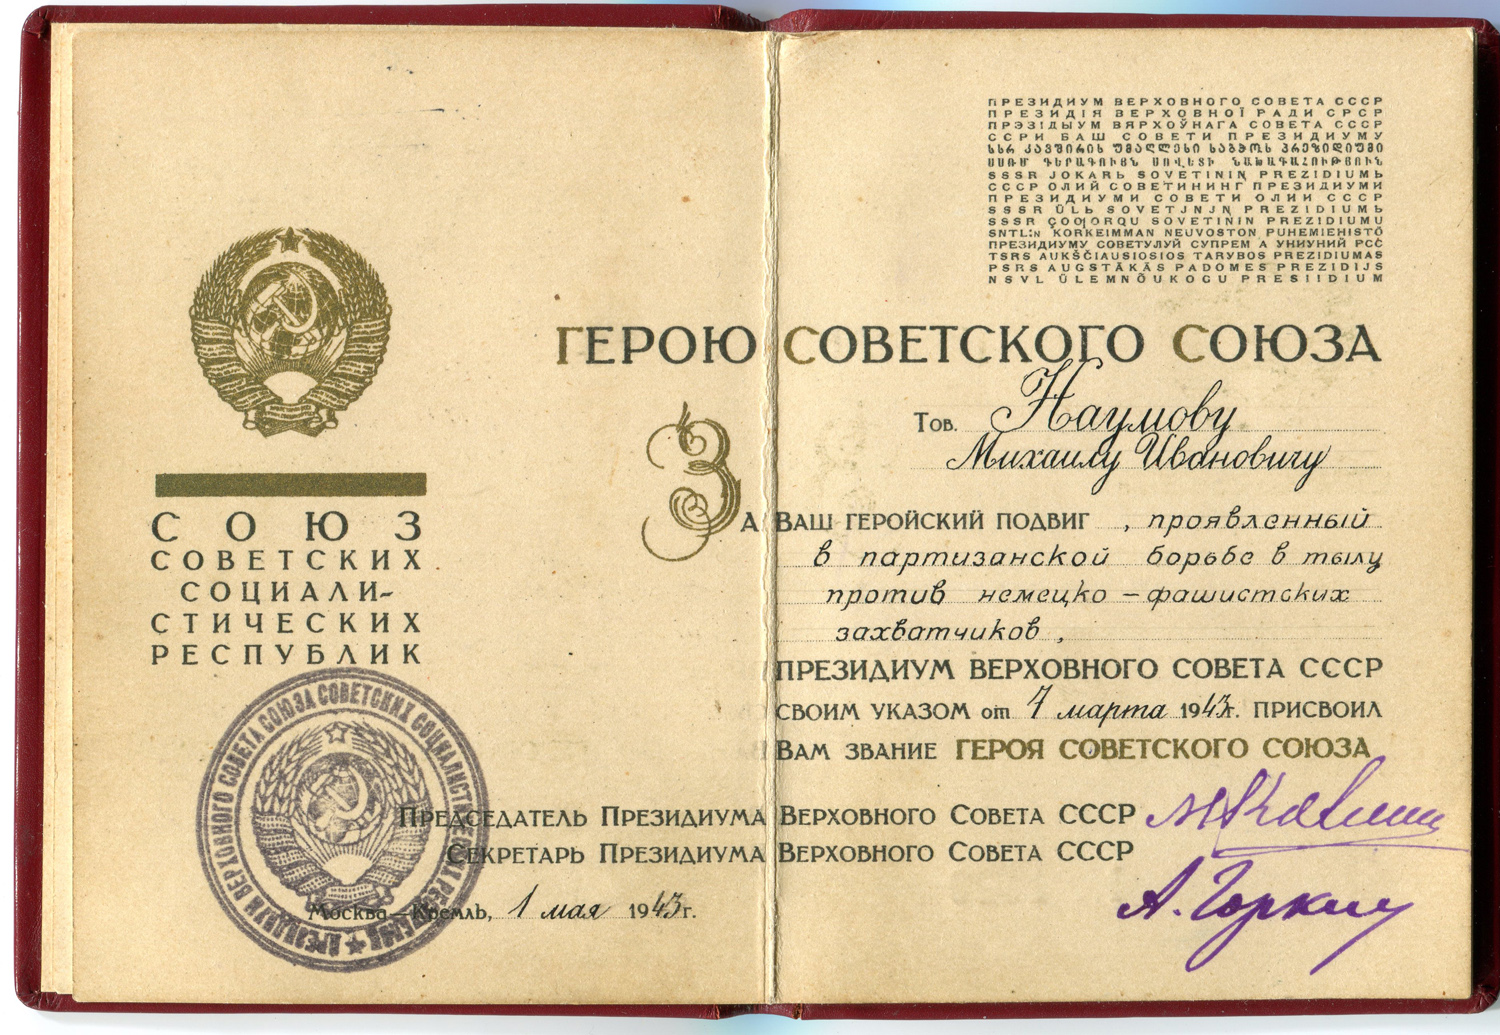 СОЮЗ
СОВЕТСКИХ
СОЦИАЛИ-
СТИЧЕСКИХ
РЕСПУБЛИК
ПРЕЗИДИУМ ВЕРХОВНОГО СОВЕТА СССР
ПРЕЗИДІЯ ВЕРХОВНОЇ РАДИ СРСР
ПРЭЗІДЫУМ ВЯРХОЎНАГА СОВЕТА СССР
ССРИ БАШ СОВЕТИ ПРЕЗИДИУМУ
ՍՍՌՄ ԳԵՐԱԳՈՒՅՆ ՍՈՎԵՏԻ ՆԱԽԱԳԱՀՈՒԹՅՈՒՆ
SSSR JOKARЬ SOVETININ PREZIDIUMЬ
СССР ОЛИЙ СОВЕТИНИНГ ПРЕЗИДИУМИ
ПРЕЗИДИУМИ СОВЕТИ ОЛИИ СССР
SSSR ÜLЬ SOVETJNJN PREZIDIUMЬ
SSSR ÇOOƢORQU SOVETININ PREZIDIUMU
SNTL:n KORKEIMMAN NEUVOSTON PUHEMIEHISTÖ
ПРЕЗИДИУМУ СОВЕТУЛУЙ СУПРЕМ А УНИУНИЙ РСС
TSRS AUKŠČIAUSIOSIOS TARYBOS PREZIDIUMAS
PSRS AUGSTĀKĀS PADOMES PREZIDIJS
NSVL ÜLEMNÕUKOGU PRESIIDIUM
ГЕРОЮ СОВЕТСКОГО СОЮЗА
Тов. Наумову
Михаилу Ивановичу
ЗА ВАШ ГЕРОЙСКИЙ ПОДВИГ, проявленный
в партизанской борьбе в тылу
против немецко – фашистских
захватчиков,
ПРЕЗИДИУМ ВЕРХОВНОГО СОВЕТА СССР
СВОИМ УКАЗОМ от 7 марта 1943г. ПРИСВОИЛ
ВАМ ЗВАНИЕ ГЕРОЯ СОВЕТСКОГО СОЮЗА
Председатель Президиума Верховного Совета СССР М Калинин
Секретарь Президиума Верховного Совета СССР
А. Горкин
Москва—Кремль, 1 мая 1943г.
ПРЕЗИДИУМ ВЕРХОВНОГО СОВЕТА СОЮЗА СОВЕТСКИХ СОЦИАЛИСТИЧЕСКИХ РЕСПУБЛИК